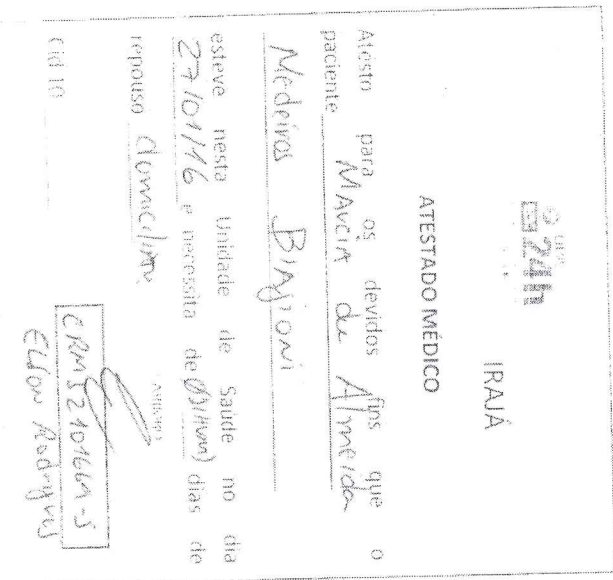 UPA
24h
IRAJÁ
ATESTADO MÉDICO
Atesto para os devidos fins que o
paciente Marcia de Almeida
Medeiros Biajioni
esteve nesta Unidade de Saúde no dia
27/01/16 e necessita de dias de
repouso domiciliar
Cid 10
CRM
Rodrigues